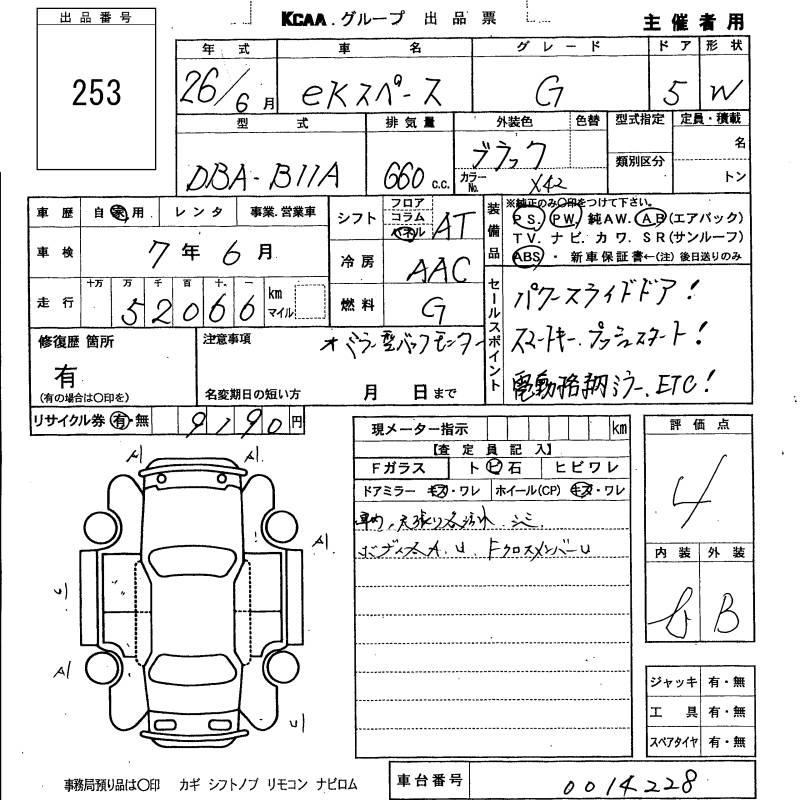 出品番号
253
KCAA.グループ 出品票
主催者用
年式 車名 グレード ドア 形状
26/6月 eKスペース G 5 W
型式 排気量 外装色 色替 型式指定 定員・積載
DBA-B11A 660 c.c. ブラック カラーNo. X42 類別区分 名 トン
車歴 自家用 レンタ 事業.営業車
車検 7年6月
走行 十万 万 千 百 十 一
52066 km マイル
シフト フロア コラム パネル AT
冷房 AAC
燃料 G
装備品 ※純正のみ○印をつけて下さい。
PS. PW. 純AW. AB(エアバック)
TV. ナビ. カワ. SR(サンルーフ)
ABS・新車保証書←(注)後日送りのみ
セールスポイント
パワースライドドア!
スマートキー.プッシュスタート!
電動格納ミラー.ETC!
修復歴 箇所
有
(有の場合は○印を)
注意事項
ミラー型バックモニター
名変期日の短い方 月 日まで
リサイクル券 有・無 9190円
現メーター指示 km
【査定員記入】
Fガラス トビ石 ヒビワレ
ドアミラー キズ・ワレ ホイール(CP) キズ・ワレ
車内、天張り 汚れ シミ
A.U. FクロスメンバーU
評価点
4
内装 外装
B
A1 A1
A1
A1
U
ジャッキ 有・無
工具 有・無
スペアタイヤ 有・無
事務局預り品は○印 カギ シフトノブ リモコン ナビロム
車台番号 0014228